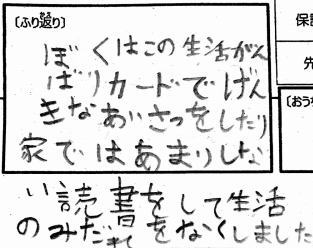 〔ふり返り〕
ぼくはこの生活がん
ばりカードでげん
きなあいさつをしたり
家ではあまりしな
い読書をして生活
のみだれをなくしました
保
先
〔おう